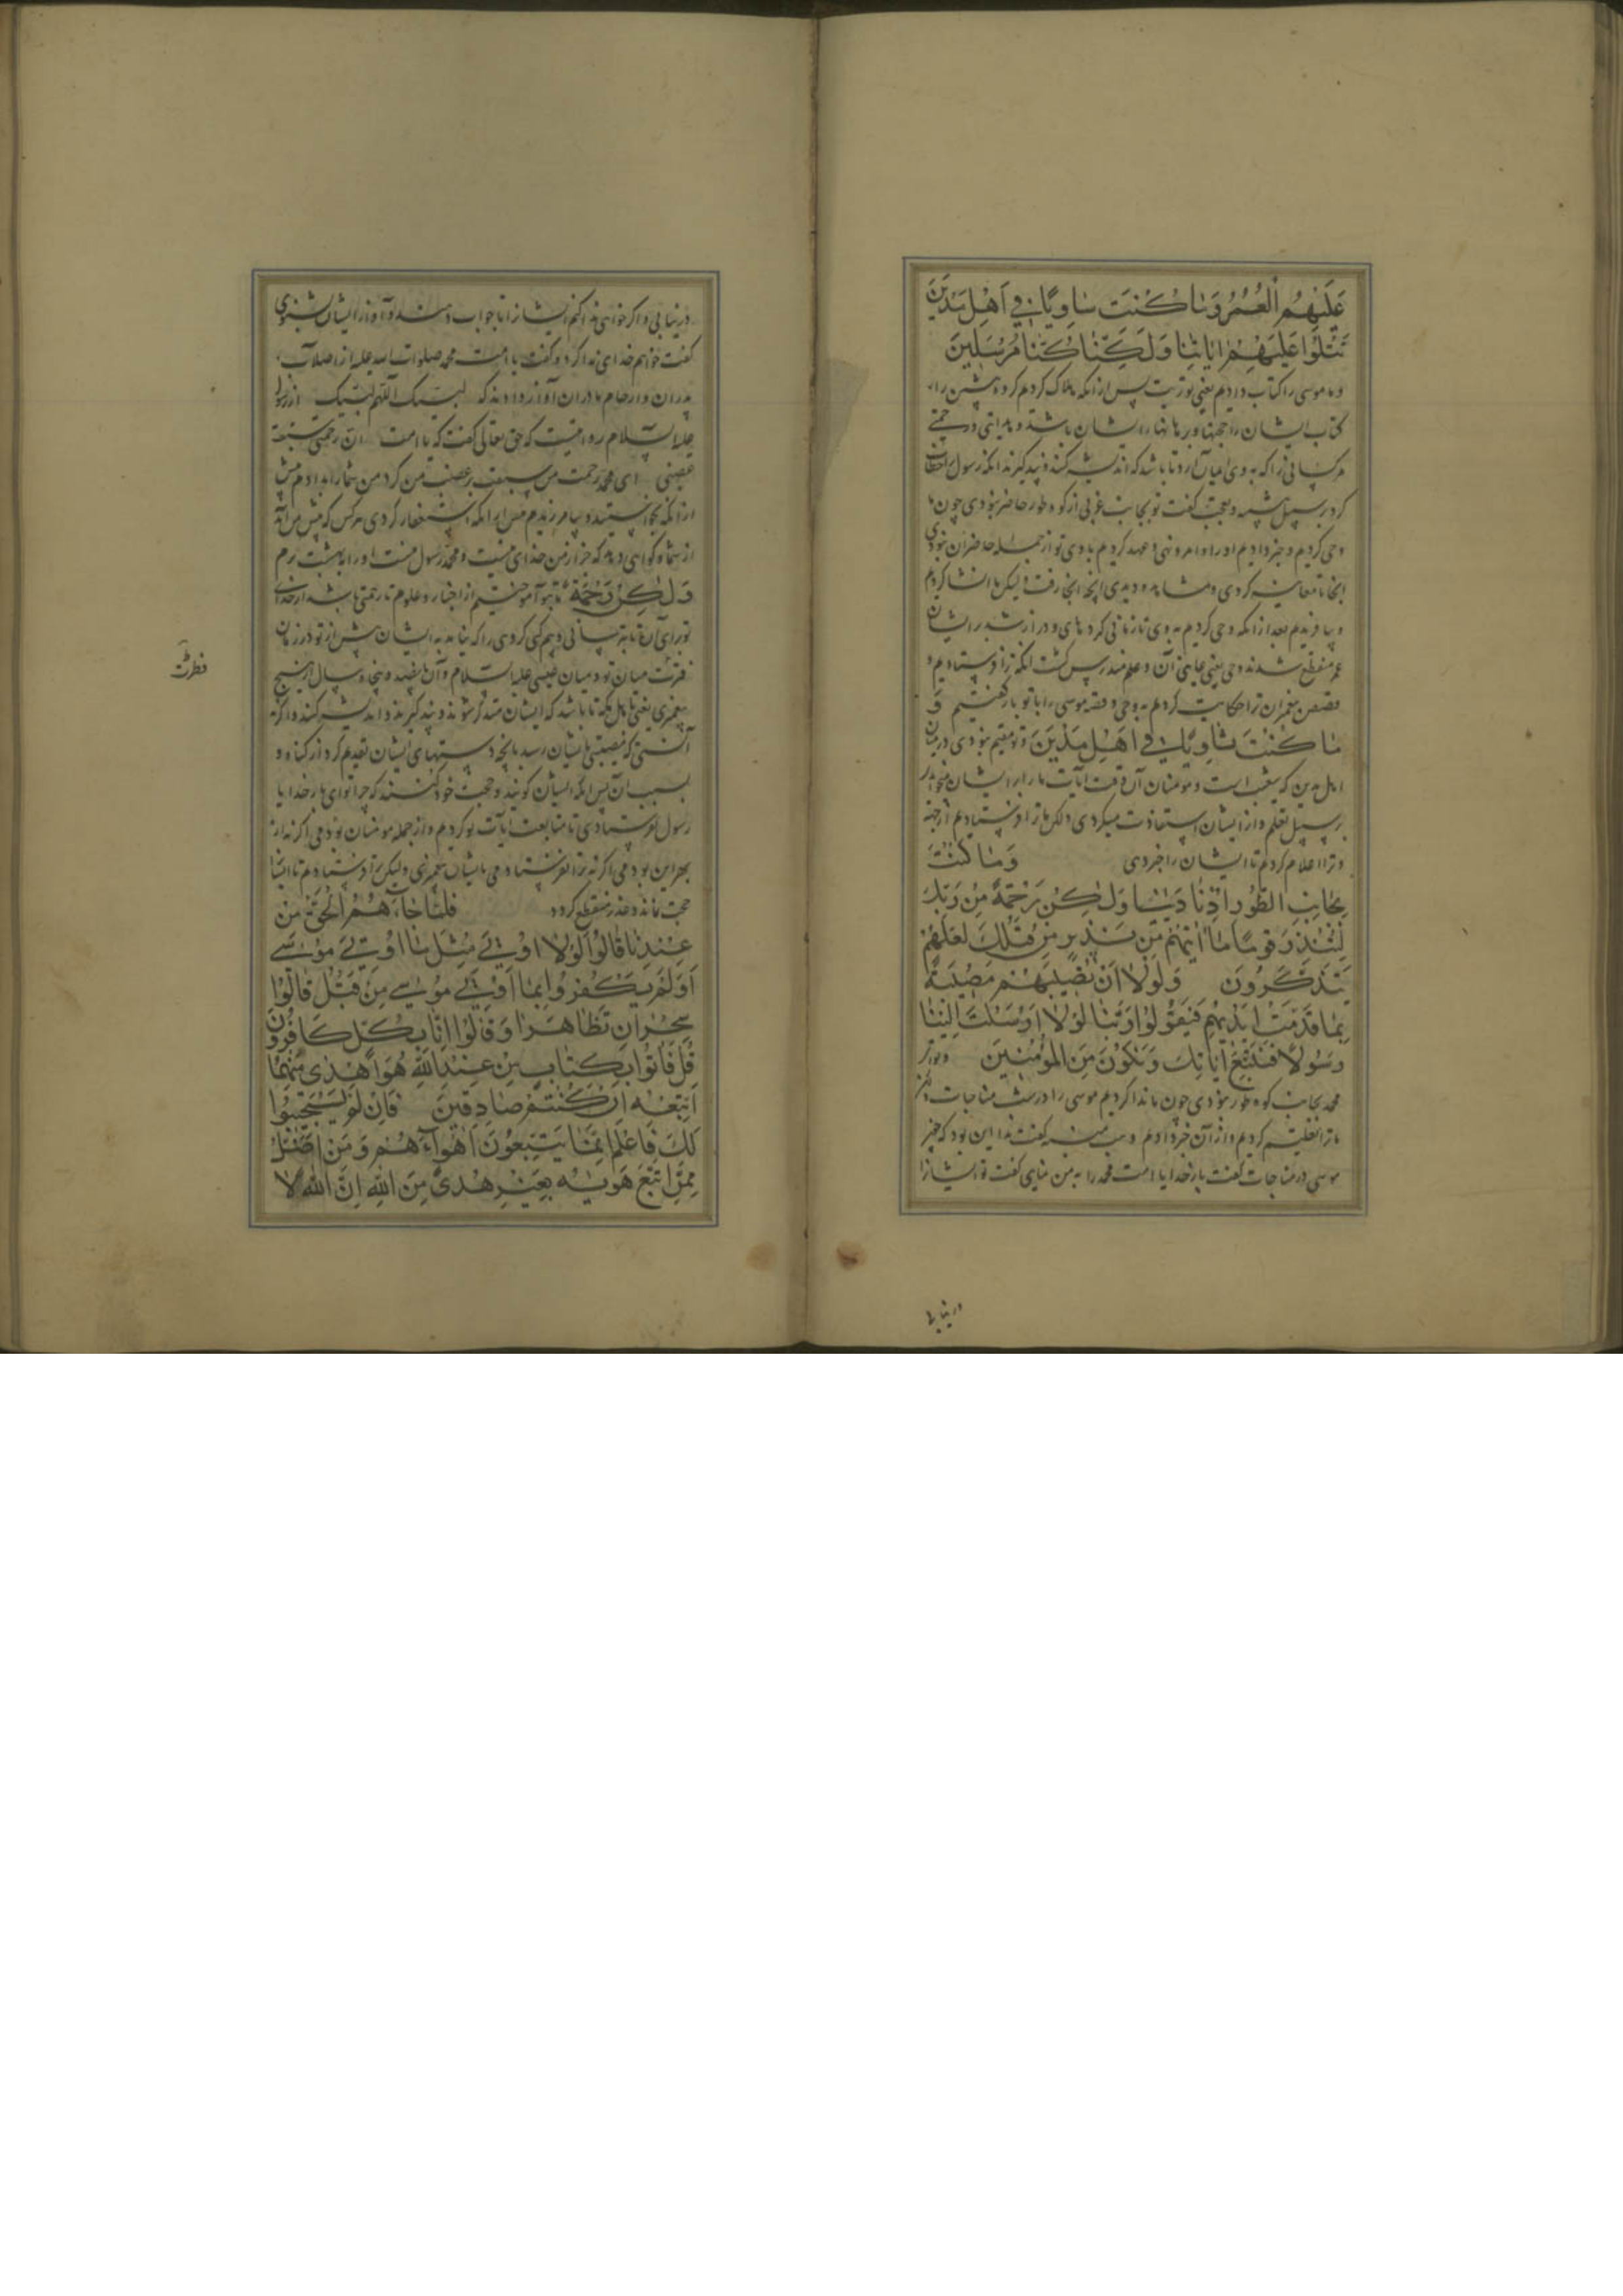 عَلَيْهِمُ الْعُمُرُ وَمَا كُنْتَ ثَاوِيًا فِي أَهْلِ مَدْيَنَ
تَتْلُوا عَلَيْهِمْ اٰيَاتِنَا وَلٰكِنَّا كُنَّا مُرْسِلِينَ
و ما موسی را کتاب دادیم یعنی توریت پس از انکه هلاک کردیم کروه پیشین را از
کتاب ایشان را حجتها و برهانها ایشان باشد و هدایتی و رحمتی
هر کسانی را که به وی ایمان ارد تا باشد که اندیشه کنند و پند کیرند انکه رسول را خطاب
کرد بر سبیل تنبیه و تعجب کفت تو بجانب غربی از کوه طور حاضر نبودی چون ما
وحی کردیم و خبر دادیم او را و امر و نهی و عهد کردیم با وی تو از جمله حاضران نبودی
انجا تا معاینه کردی و مشاهده دیدی انچه انجا رفت ولیکن ما انشا کردیم
و بیافریدیم بعد از انکه وحی کردیم به وی تا زمانی کروهای و دراز شد بر ایشان
عمر منقطع شدند وحی یعنی اعیان و علم مندرس کشت انکه ترا فرستادیم و
قصص پیغمبران ترا حکایت کردیم به وحی و قصه موسی را با تو باز کفتیم وَ
مَا كُنْتَ ثَاوِيًا فِي أَهْلِ مَدْيَنَ و تو مقیم نبودی در میان
اهل مدین که شعیب است و مومنان آن وقت ایات ما را بر ایشان میخواندی
بر سبیل تعلم و از ایشان استفادت میکردی ولکن ما ترا فرستادیم از جهة
و ترا اعلام کردیم تا ایشان را خبر دی وَمَا كُنْتَ
بِجَانِبِ الطُّورِ إِذْ نَادَيْنَا وَلٰكِنْ رَحْمَةً مِنْ رَبِّكَ
لِتُنْذِرَ قَوْمًا مَا أَتٰيهُمْ مِنْ نَذِيرٍ مِنْ قَبْلِكَ لَعَلَّهُمْ
يَتَذَكَّرُونَ وَلَوْلَا أَنْ تُصِيبَهُمْ مُصِيبَةٌ
بِمَا قَدَّمَتْ أَيْدِيهِمْ فَيَقُولُوا رَبَّنَا لَوْلَا أَرْسَلْتَ إِلَيْنَا
رَسُولًا فَنَتَّبِعَ اٰيَاتِكَ وَنَكُونَ مِنَ الْمُؤْمِنِينَ و تو اثر
محمد بجانب کوه طور نبودی چون ما ندا کردیم موسی را در شب مناجات ولکن
ما ترا تعلیم کردیم و از آن خبر دادیم وهب منبه کفت ندا این بود که چون
موسی در مناجات کفت بار خدایا امت محمد را به من نمایی کفت تو ایشانرا
در نیابی
در نیابی و اکر خواهی ندا کنم ایشانرا تا جواب دهند و آواز ایشان بشنوی
کفت خواهم خدای ندا کرد و کفت یا امت محمد صلوات الله علیه از اصلاب
پدران و ارحام مادران آواز دادند که لبیک اللهم لبیک از رسول
علیه السلام روایتست که حق تعالی کفت که یا امت ان رحمتی سبقت
غضبی ای محمد رحمت من سبقت بر غضب من کرد من شما را بدادم پیش
از انکه بخواستید و بیامرزیدم پیش از انکه استغفار کردی هر کس که پیش من آید
از شما و کواهی دهد که جز از من خدای نیست و محمد رسول منست او را ببهشت برم
وَلٰكِنْ رَحْمَةً تا بتو آموختیم از اخبار و علوم تا رحمتی باشد از خدای
تو برای آن تا بترسانی و بیم کنی کروهی را که نیامد به ایشان پیش از تو در زمان
فترت میان تو و میان عیسی علیه السلام و آن پانصد و پنجاه سال از هیچ
پیغمبری یعنی تا اهل مکه تا باشد که ایشان متذکر شوند و پند کیرند و اندیشه کنند و اکر نه
آنستی که مصیبتی بایشان رسد بانچه دستهای ایشان تقدیم کرد از کناه و
بسبب آن پس انکه ایشان کویند و حجت خود کنند که چرا تو ای بار خدایا
رسول نفرستادی تا متابعت آیات تو کردیم و از جمله مومنان بودمی اکر نه از
بهر این بودمی اکر نه ترا نفرستادمی بایشان پیغمبری ولیکن ترا فرستادم تا ایشانرا
حجت نماند و عذر منقطع کردد فَلَمَّا جَاءَهُمُ الْحَقُّ مِنْ
عِنْدِنَا قَالُوا لَوْلَا أُوتِيَ مِثْلَ مَا أُوتِيَ مُوسٰى
أَوَلَمْ يَكْفُرُوا بِمَا أُوتِيَ مُوسٰى مِنْ قَبْلُ قَالُوا
سِحْرَانِ تَظَاهَرَا وَقَالُوا إِنَّا بِكُلٍّ كَافِرُونَ
قُلْ فَأْتُوا بِكِتَابٍ مِنْ عِنْدِ اللّٰهِ هُوَ أَهْدٰى مِنْهُمَا
أَتَّبِعْهُ إِنْ كُنْتُمْ صَادِقِينَ فَإِنْ لَمْ يَسْتَجِيبُوا
لَكَ فَاعْلَمْ أَنَّمَا يَتَّبِعُونَ أَهْوَاءَهُمْ وَمَنْ أَضَلُّ
مِمَّنِ اتَّبَعَ هَوٰيهُ بِغَيْرِ هُدًى مِنَ اللّٰهِ إِنَّ اللّٰهَ لَا
فطرت